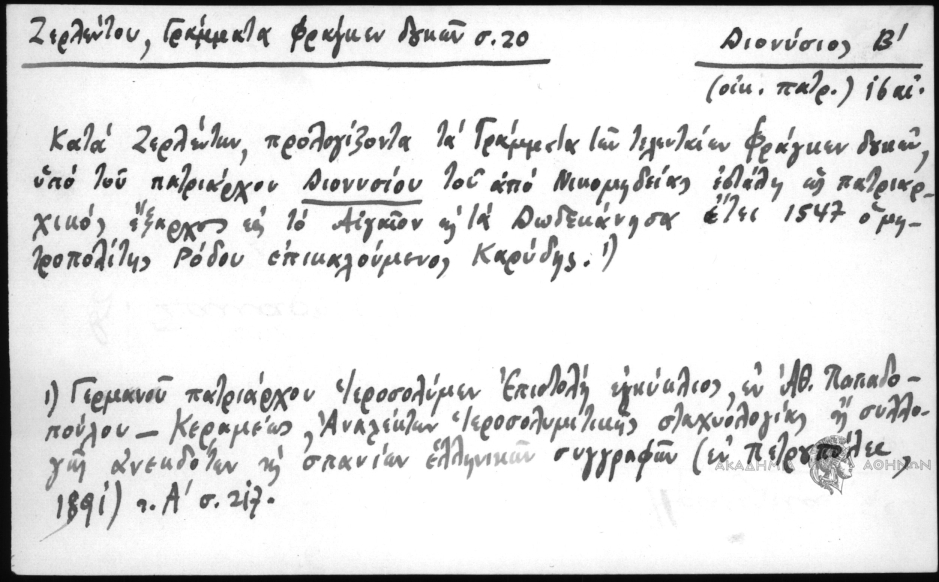 Ζερλέντου, Γράμματα φράγκων δουκῶν σ. 20
Διονύσιος Β'
(οἰκ. πατρ.) ις αἰ.
Κατά Ζερλέντην, προλογίζοντα τά Γράμματα τῶν τελευταίων φράγκων δουκῶν,
ὑπό τοῦ πατριάρχου Διονυσίου τοῦ ἀπό Νικομηδείας ἐστάλη ὡς πατριαρ-
χικός ἔξαρχος εἰς τό Αἰγαῖον καί τά Δωδεκάνησα ἔτει 1547 ὁ μη-
τροπολίτης Ρόδου ἐπικαλούμενος Καρύδης. 1)
1) Γερμανοῦ πατριάρχου Ἱεροσολύμων Ἐπιστολή ἐγκύκλιος, ἐν Ἀθ. Παπαδο-
πούλου - Κεραμέως, Ἀναλέκτων Ἱεροσολυμιτικῆς σταχυολογίας ἤ συλλο-
γῆς ἀνεκδότων καί σπανίων ἑλληνικῶν συγγραφῶν (ἐν Πετρουπόλει,
1891) τ. Α' σ.
ΑΚΑΔΗΜΙΑ ΑΘΗΝΩΝ